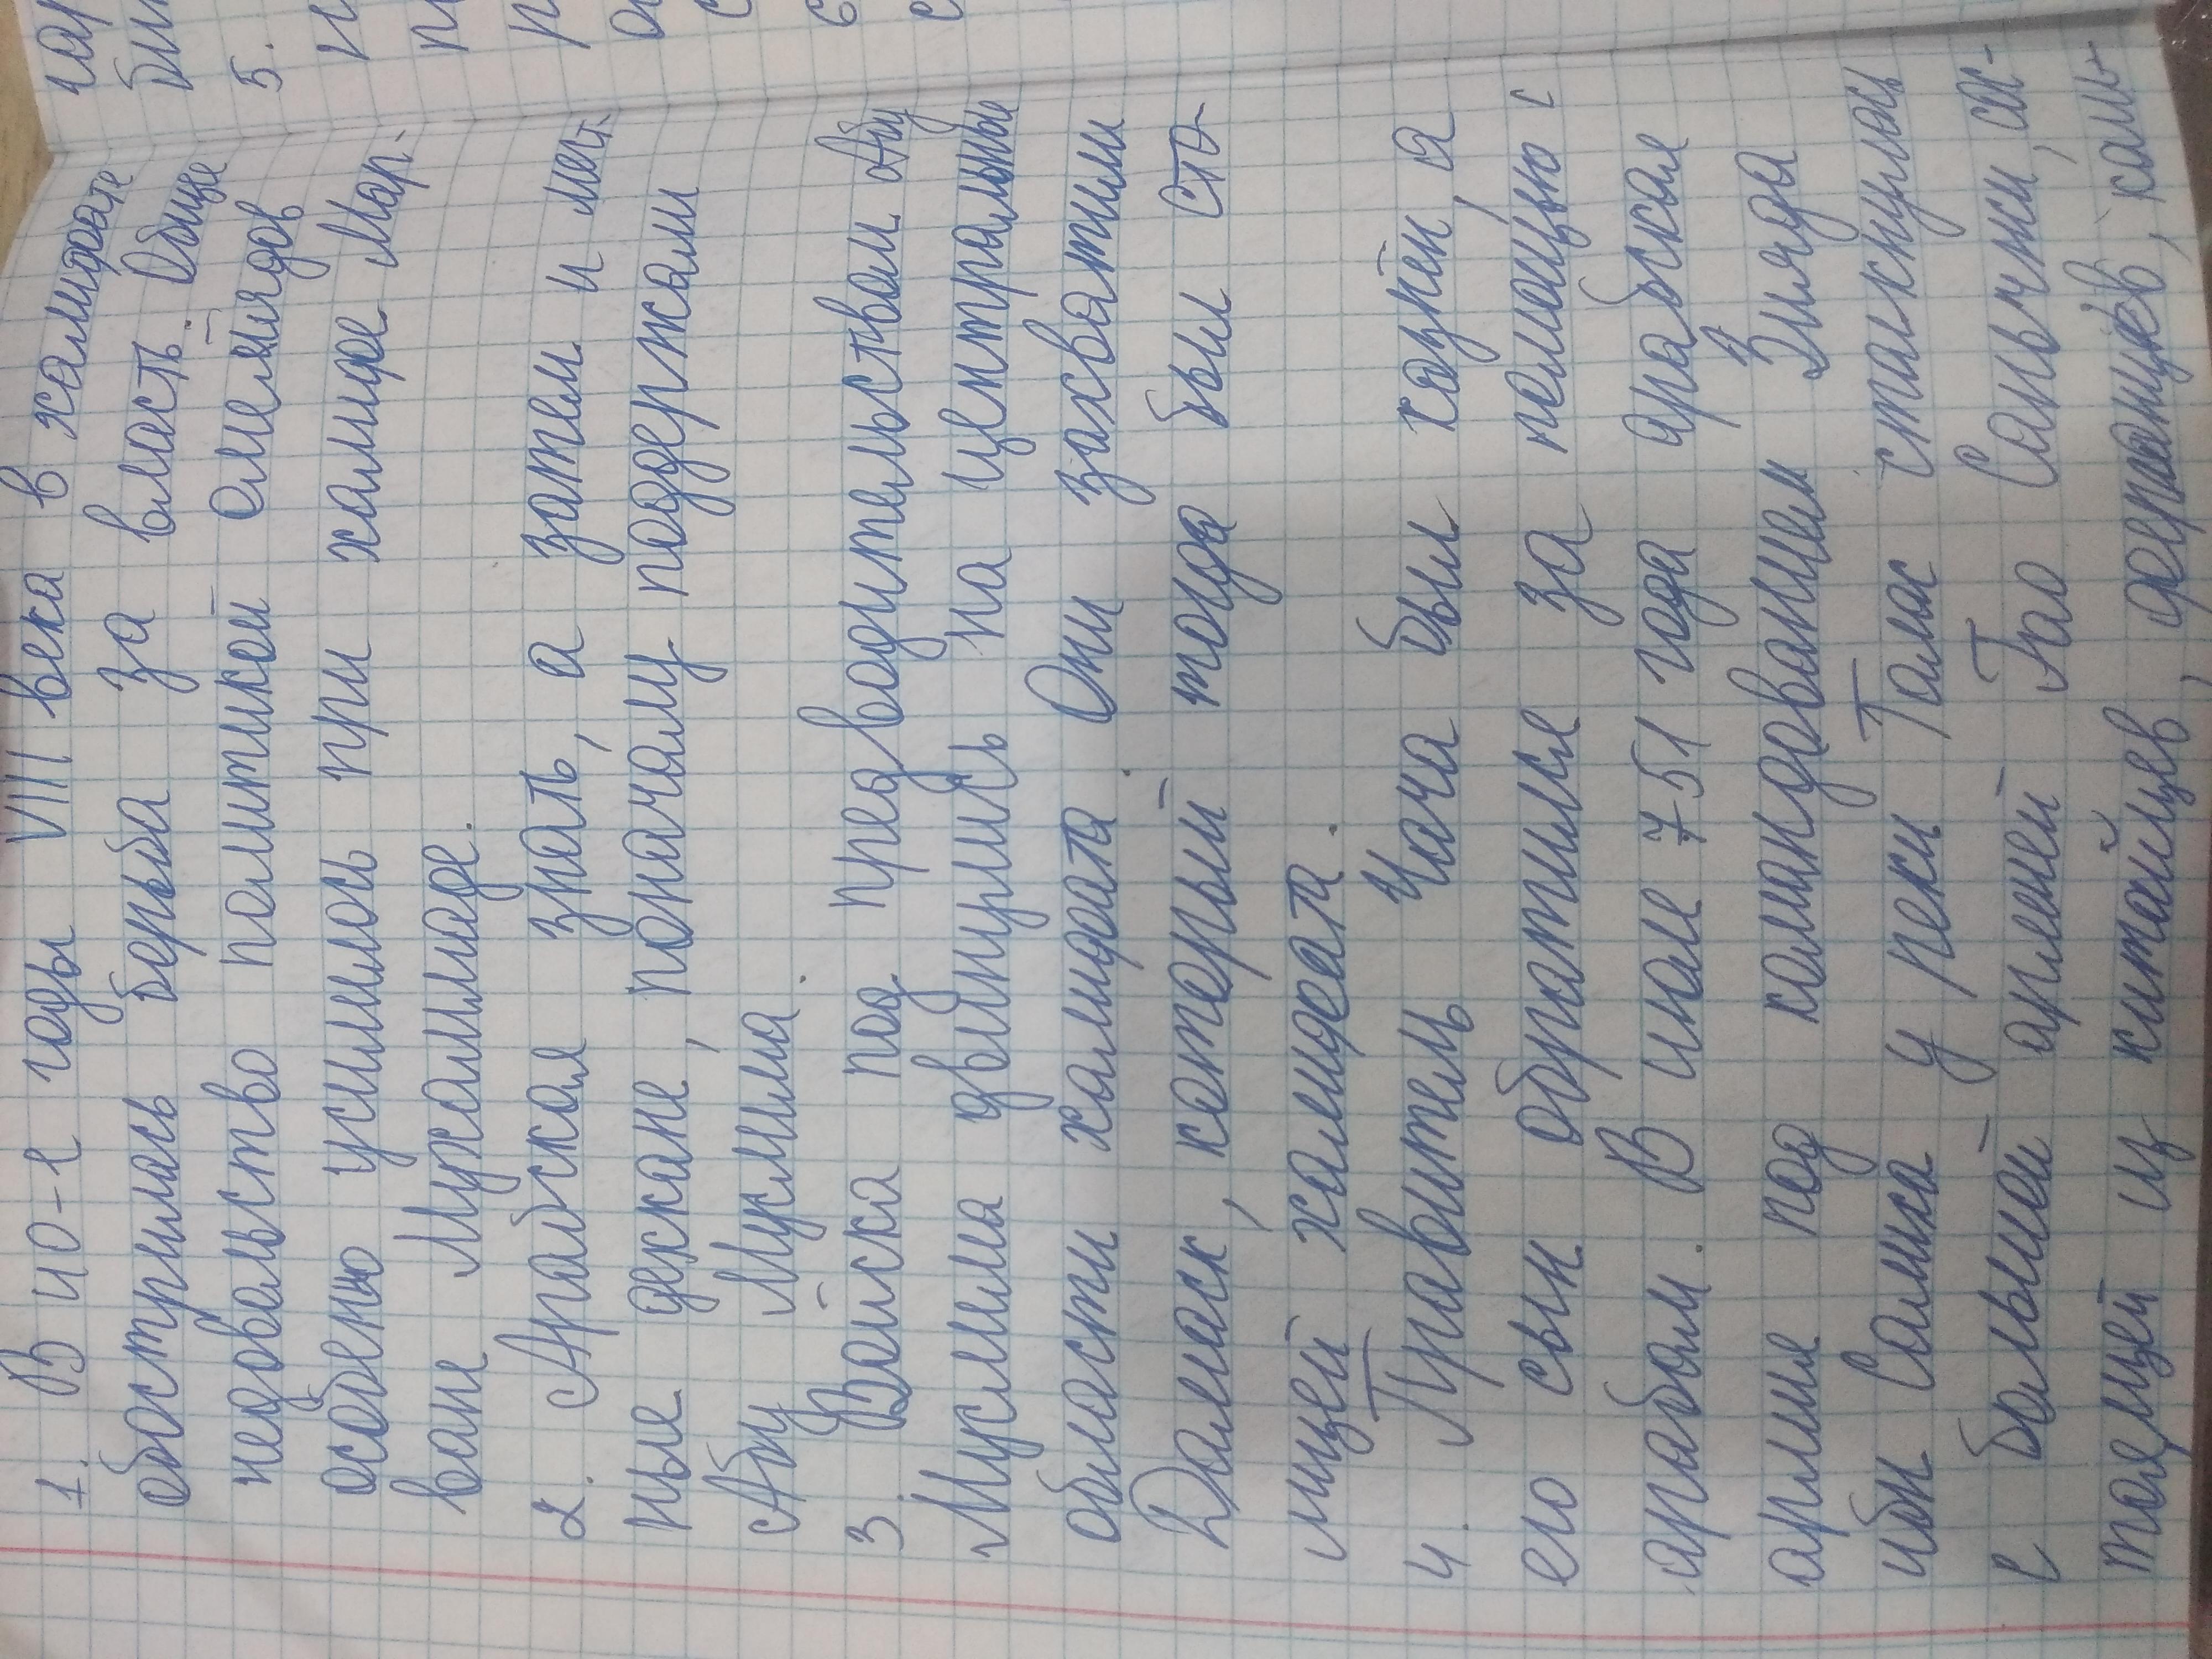 1. В 40-е годы VIII века в халифате
обострилась борьба за власть. Общее
недовольство политикой омейядов
особенно усилилось при халифе Мар-
ване Мухаммаде.
2. Арабская знать, а затем и мест-
ные дехкане, поначалу поддержали
Абу Муслима.
3. Войска под предводительством Абу
Муслима двинулись на центральные
области халифата. Они захватили
Дамаск, который тогда был сто-
лицей халифата.
4. Правитель Чача был казнен, а
его сын обратился за помощью к
арабам. В июле 751 года арабская
армия под командованием Зияда
ибн Салиха у реки Талас столкнулась
с большой армией Гао Сяньчжи, сос-
тоящей из китайцев,
5.